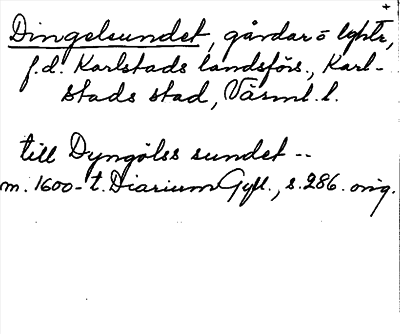 +
Dingelsundet, gårdar o lght,
f.d. Karlstads landsförs., Karl-
stads stad, Värml. l.
till Dyngölss sundet --
m. 1600-t. Diarium Gyll., s. 286. orig.